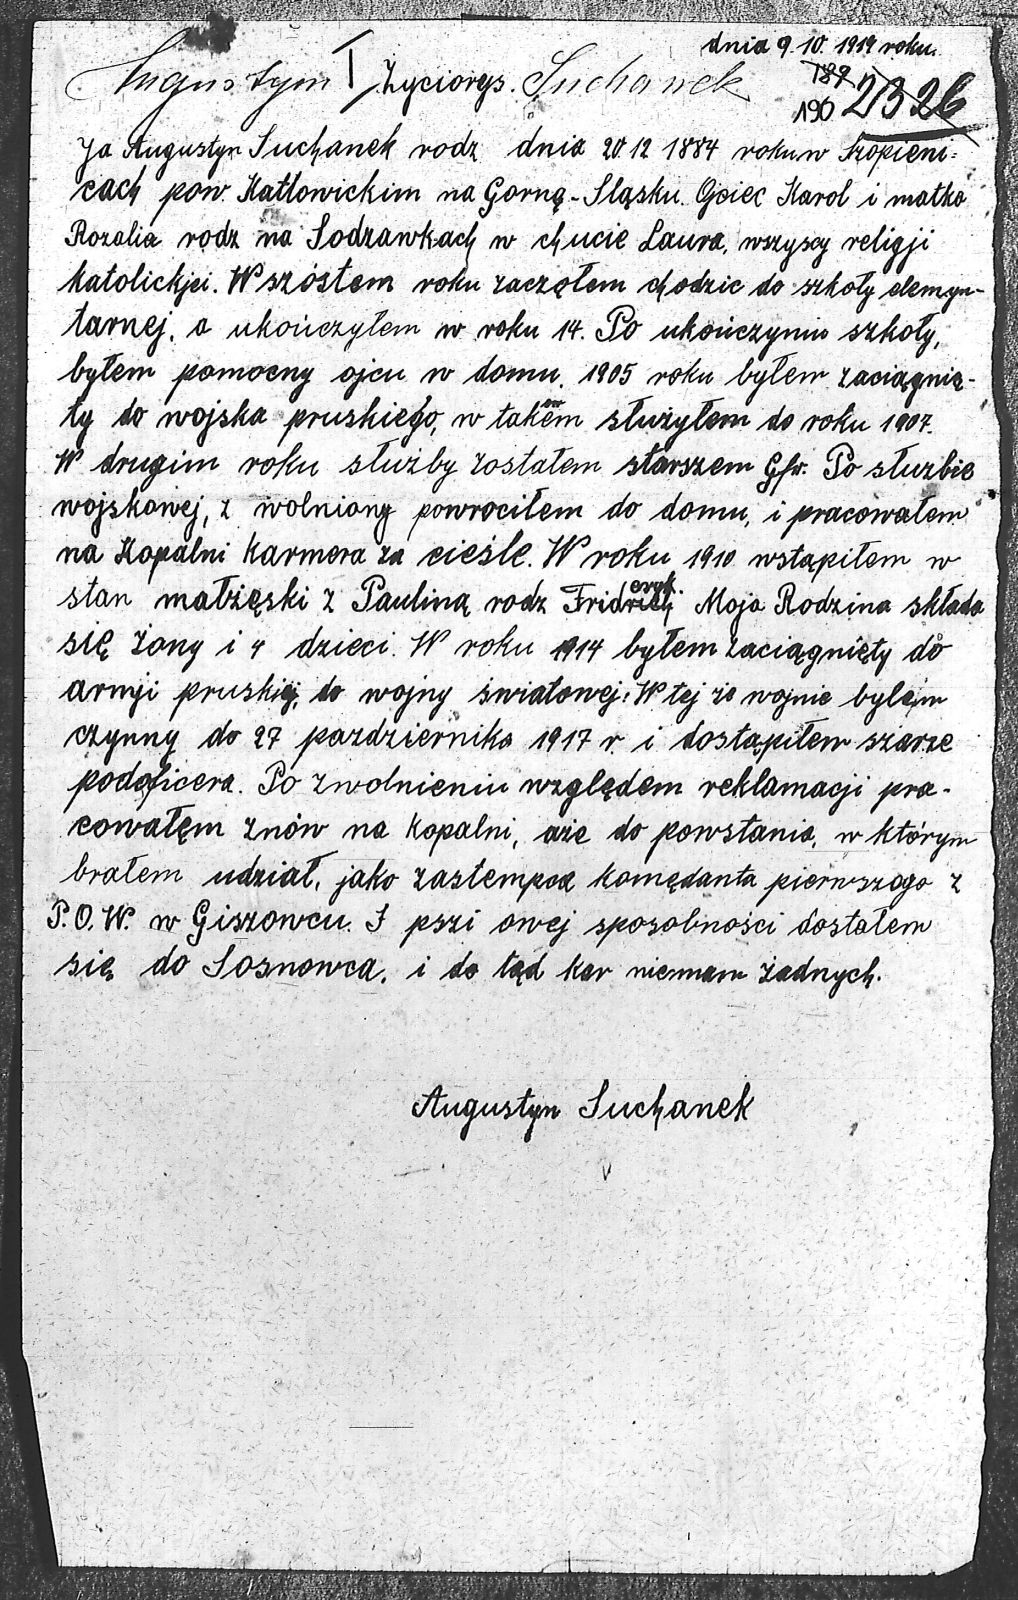 dnia 9. 10. 1919 roku.
Augustym I Życiorys. Suchanek
189
190 2326
Ja Augustyn Suchanek rodz dnia 20 12 1884 roku w Szopieni-
cach pow. Kattowickim na Gorną-Sląsku. Ojciec Karol i matka
Rozalia rodz na Sodzawkach w chucie Laura, wszyscy religji
katolickjei. W szóstem roku zaczołem chodzic do szkoły elemyn-
tarnej, a ukończyłem w roku 14. Po ukończyniu szkoły,
byłem pomocny ojcu w domu. 1905 roku byłem zaciągnię-
ty do wojska pruskiego, w takem służyłem do roku 1907.
W drugim roku służby zostałem starszem Gfr. Po służbie
wojskowej, z wolniony powrociłem do domu, i pracowałem
na Kopalni Karmera za cieśle. W roku 1910 wstąpiłem w
stan małżęski z Pauliną rodz Fridrich eryk. Moja Rodzina składa
się żony i 4 dzieci. W roku 1914 byłem zaciągnięty do
armji pruskiej, do wojny światowej. W tej że wojnie byłem
czynny do 27 pazdziernika 1917 r i dostąpiłem szarze
podoficera. Po zwolnieniu względem reklamacji pra-
cowałęm znów na kopalni, aże do powstania, w którym
brałem udział, jako zastempca komędanta pierwszogo z
P.O.W. w Giszowcu. I pszi owej sposobności dostałem
się do Sosnowca, i do tąd kar niemam żadnych.
Augustyn Suchanek